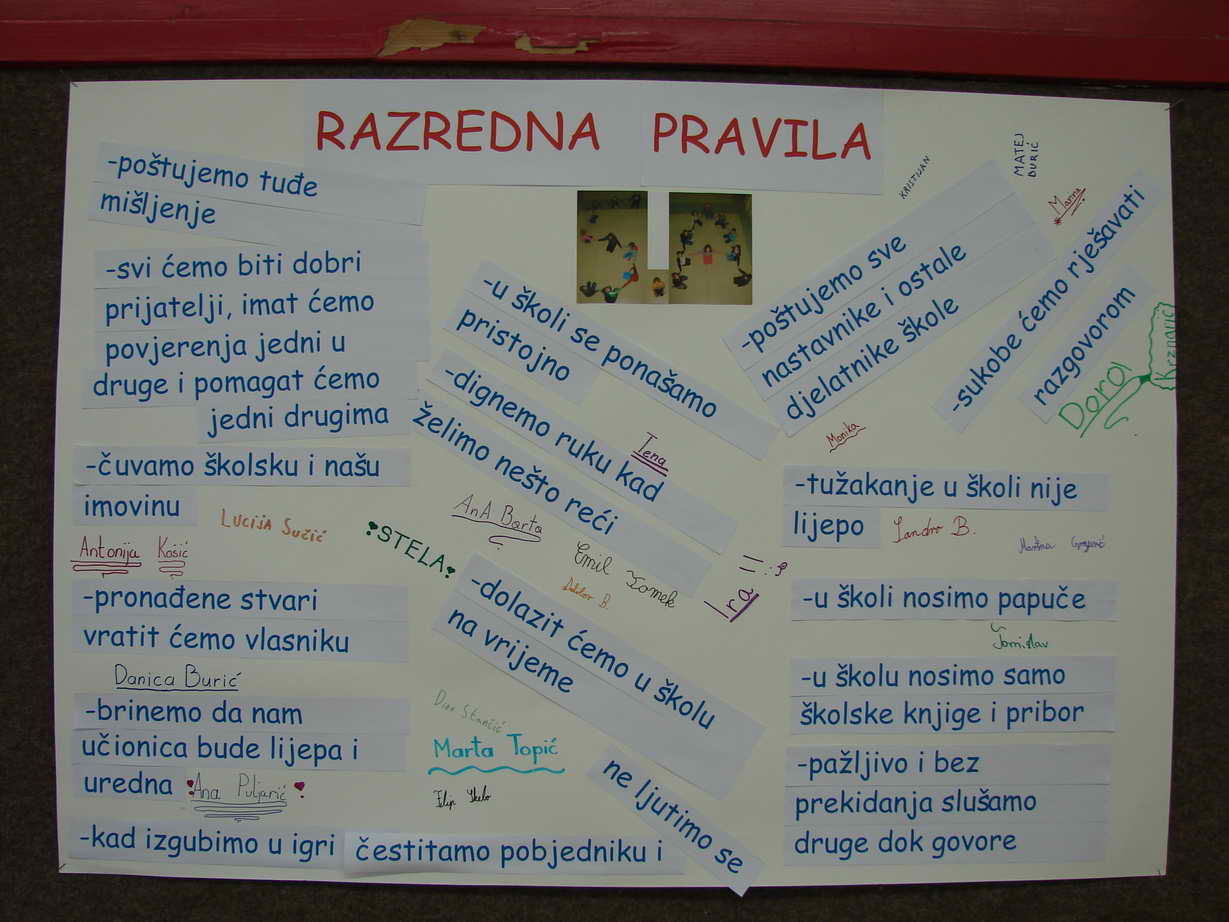 RAZREDNA PRAVILA
-poštujemo tuđe
mišljenje
-svi ćemo biti dobri
prijatelji, imat ćemo
povjerenja jedni u
druge i pomagat ćemo
jedni drugima
-čuvamo školsku i našu
imovinu
Antonija Kosić
LUCIJA SUČIĆ
STELA
-pronađene stvari
vratit ćemo vlasniku
Danica Burić
-brinemo da nam
učionica bude lijepa i
uredna
Ana Puljarić
-kad izgubimo u igri
čestitamo pobjedniku i
ne ljutimo se
-u školi se ponašamo
pristojno
-dignemo ruku kad
želimo nešto reći
Tena
AnA Barta
Emil Tomek
B.
Ira
-dolazit ćemo u školu
na vrijeme
Dino Stančić
Marta Topić
Filip
KRISTIJAN
MATEJ
ĐURIĆ
Marina
-poštujemo sve
nastavnike i ostale
djelatnike škole
-sukobe ćemo rješavati
razgovorom
Dora
Krznarić
Monika
-tužakanje u školi nije
lijepo
Sandro B.
Martina
-u školi nosimo papuče
Tomislav
-u školu nosimo samo
školske knjige i pribor
-pažljivo i bez
prekidanja slušamo
druge dok govore